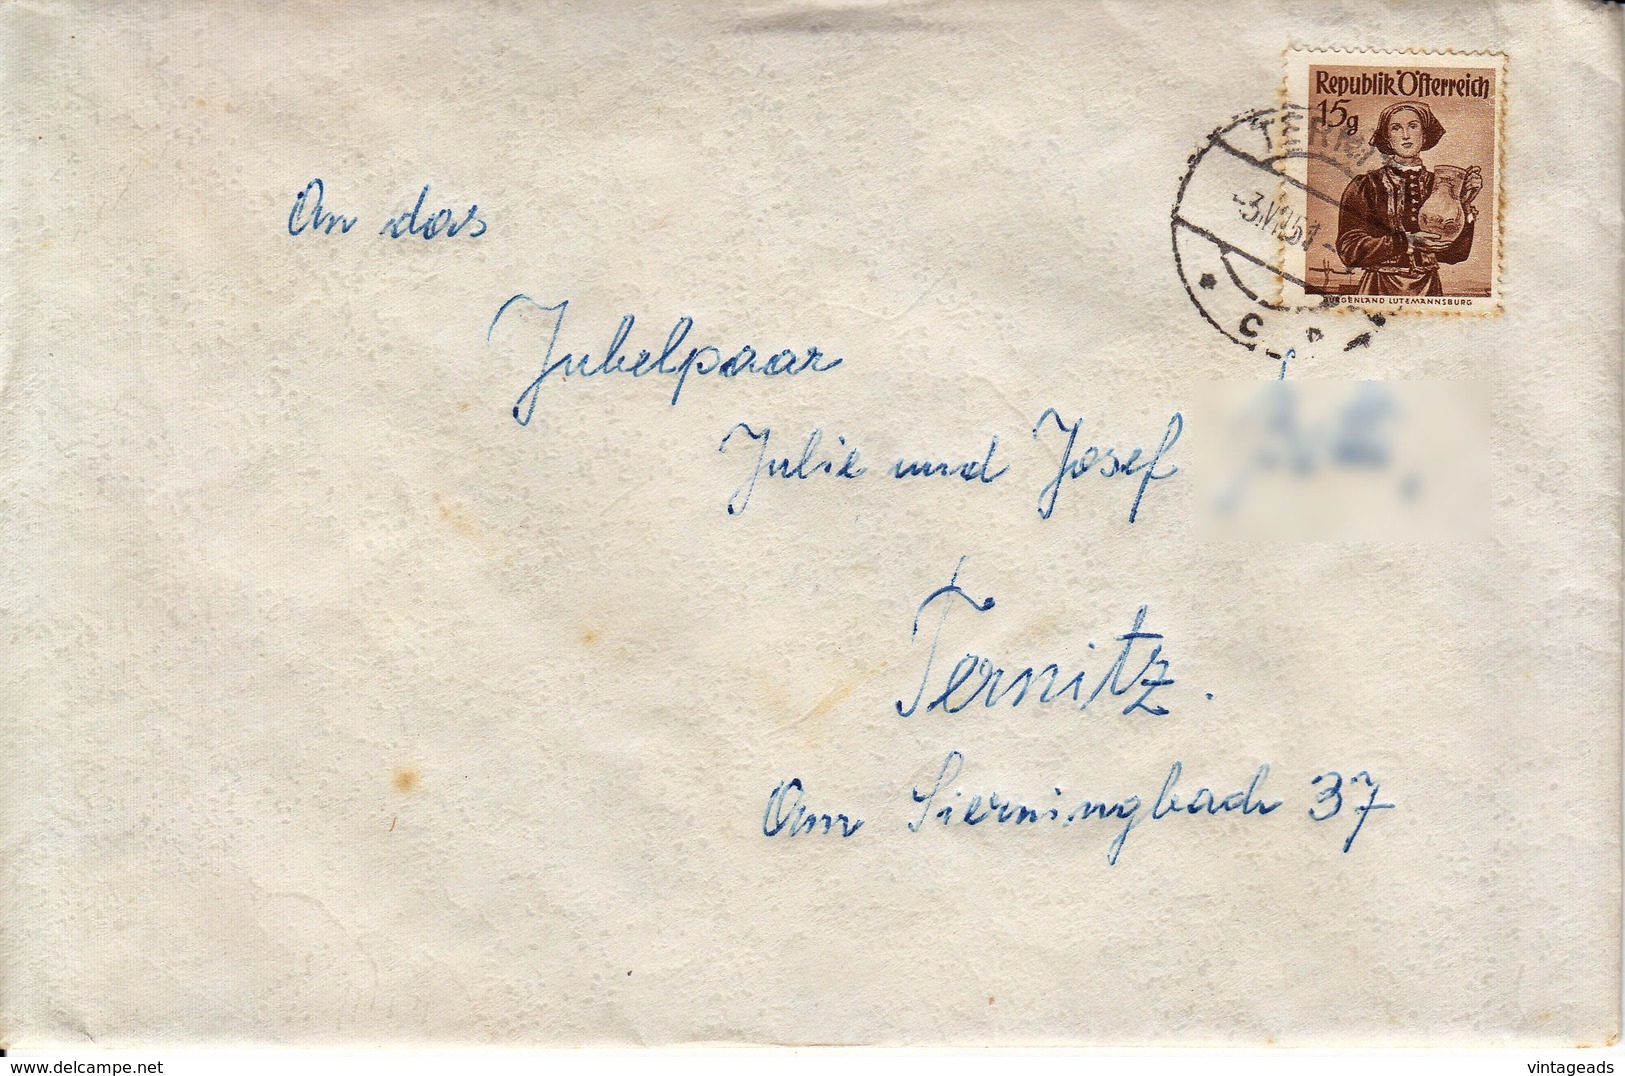 Republik Österreich
15g
BURGENLAND LUTZMANNSBURG
An das
Jubelpaar
Julie und Josef
Ternitz.
Am Sierningbach 37
delcampe.net
vintageads